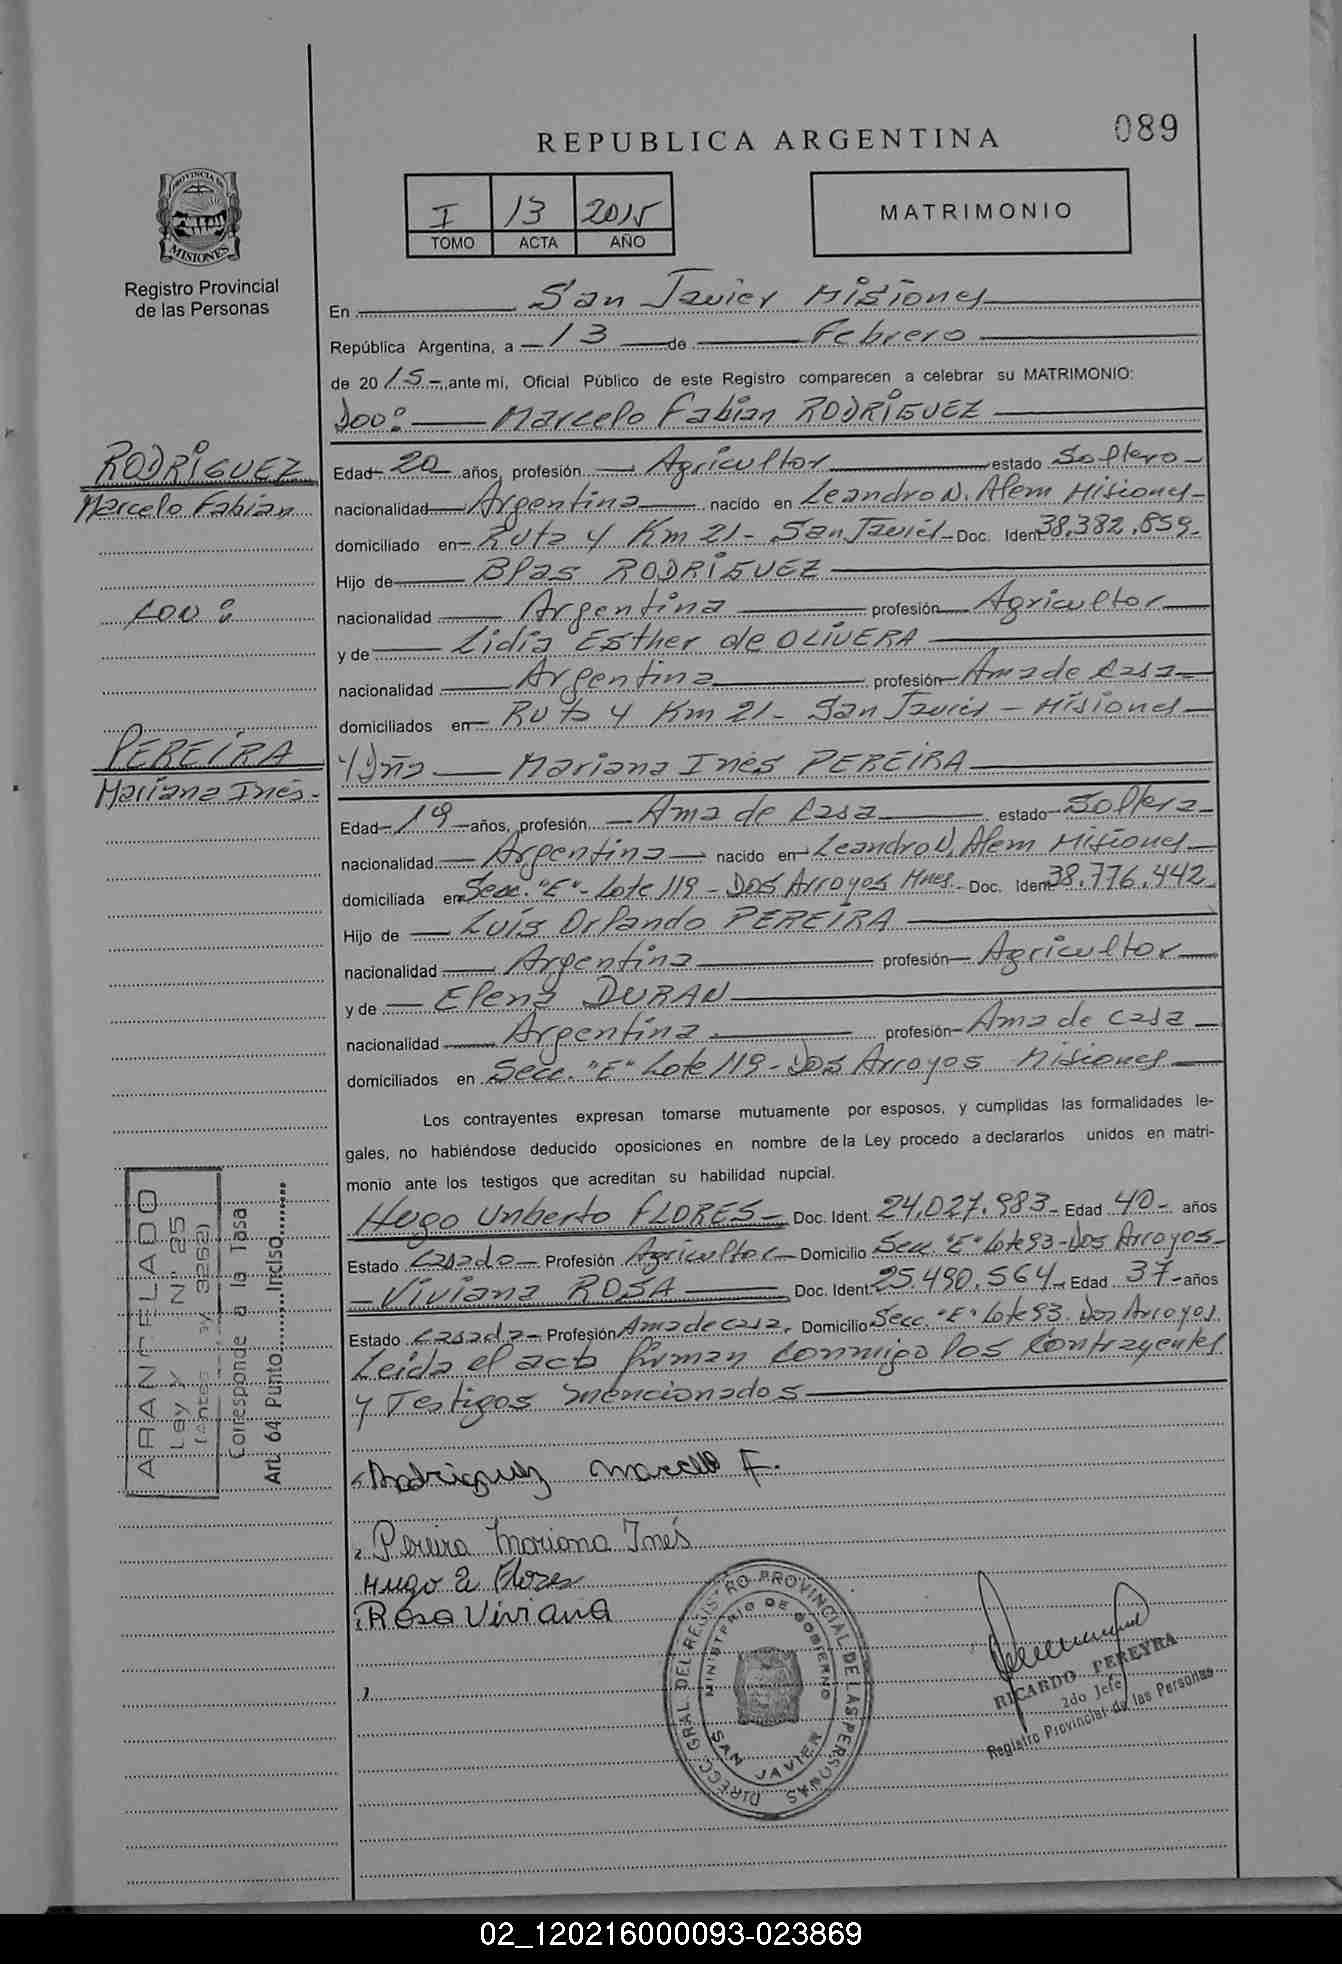 REPUBLICA ARGENTINA
089
PROVINCIA DE
MISIONES
Registro Provincial
de las Personas
I 13 2015
TOMO ACTA AÑO
MATRIMONIO
En San Javier Misiones
República Argentina, a 13 de Febrero
de 2015 -, ante mi, Oficial Público de este Registro comparecen a celebrar su MATRIMONIO:
Don: Marcelo Fabian RODRIGUEZ
RODRIGUEZ
Marcelo Fabian
con:
PEREIRA
Mariana Inés.
Edad 20 años, profesión Agricultor estado Soltero
nacionalidad Argentina nacido en Leandro N. Alem Misiones
domiciliado en Ruta 4 Km 21 - San Javier - Doc. Ident 38.382.859.
Hijo de Blas RODRIGUEZ
nacionalidad Argentina profesión Agricultor
y de Lidia Esther de OLIVERA
nacionalidad Argentina profesión Ama de Casa
domiciliados en Ruta 4 Km 21 - San Javier - Misiones
Y Dña Mariana Inés PEREIRA
Edad 19 años, profesión Ama de Casa estado Soltera
nacionalidad Argentina nacido en Leandro N. Alem Misiones
domiciliada en Secc. "E" - Lote 119 - Dos Arroyos Mnes. Doc. Ident 38.776.442
Hijo de Luis Orlando PEREIRA
nacionalidad Argentina profesión Agricultor
y de Elena DURAN
nacionalidad Argentina profesión Ama de casa
domiciliados en Secc. "E" Lote 119 - Dos Arroyos Misiones
Los contrayentes expresan tomarse mutuamente por esposos, y cumplidas las formalidades le-
gales, no habiéndose deducido oposiciones en nombre de la Ley procedo a declararlos unidos en matri-
monio ante los testigos que acreditan su habilidad nupcial.
Hugo Unberto FLORES - Doc. Ident. 24.027.983 - Edad 40 - años
Estado Casado - Profesión Agricultor - Domicilio Secc. "E" Lote 93 - Dos Arroyos -
Viviana ROSA Doc. Ident. 25.490.564 - Edad 37 - años
Estado Casada - Profesión Ama de casa. Domicilio Secc. "E" Lote 93. Dos Arroyos.
Leida el acta firman conmigo los Contrayentes
y Testigos mencionados
ARANCELADO
Ley X N° 25
(antes Ley 3252)
Corresponde a la Tasa
Art. 64 Punto........Inciso........
Rodriguez Marcelo F.
Pereira Mariana Inés
Hugo U Flores
Rosa Viviana
DIRECC. GRAL DEL REGISTRO PROVINCIAL DE LAS PERSONAS
MINISTERIO DE GOBIERNO
SAN JAVIER
RICARDO PEREYRA
2do Jefe
Registro Provincial de las Personas
02_120216000093-023869